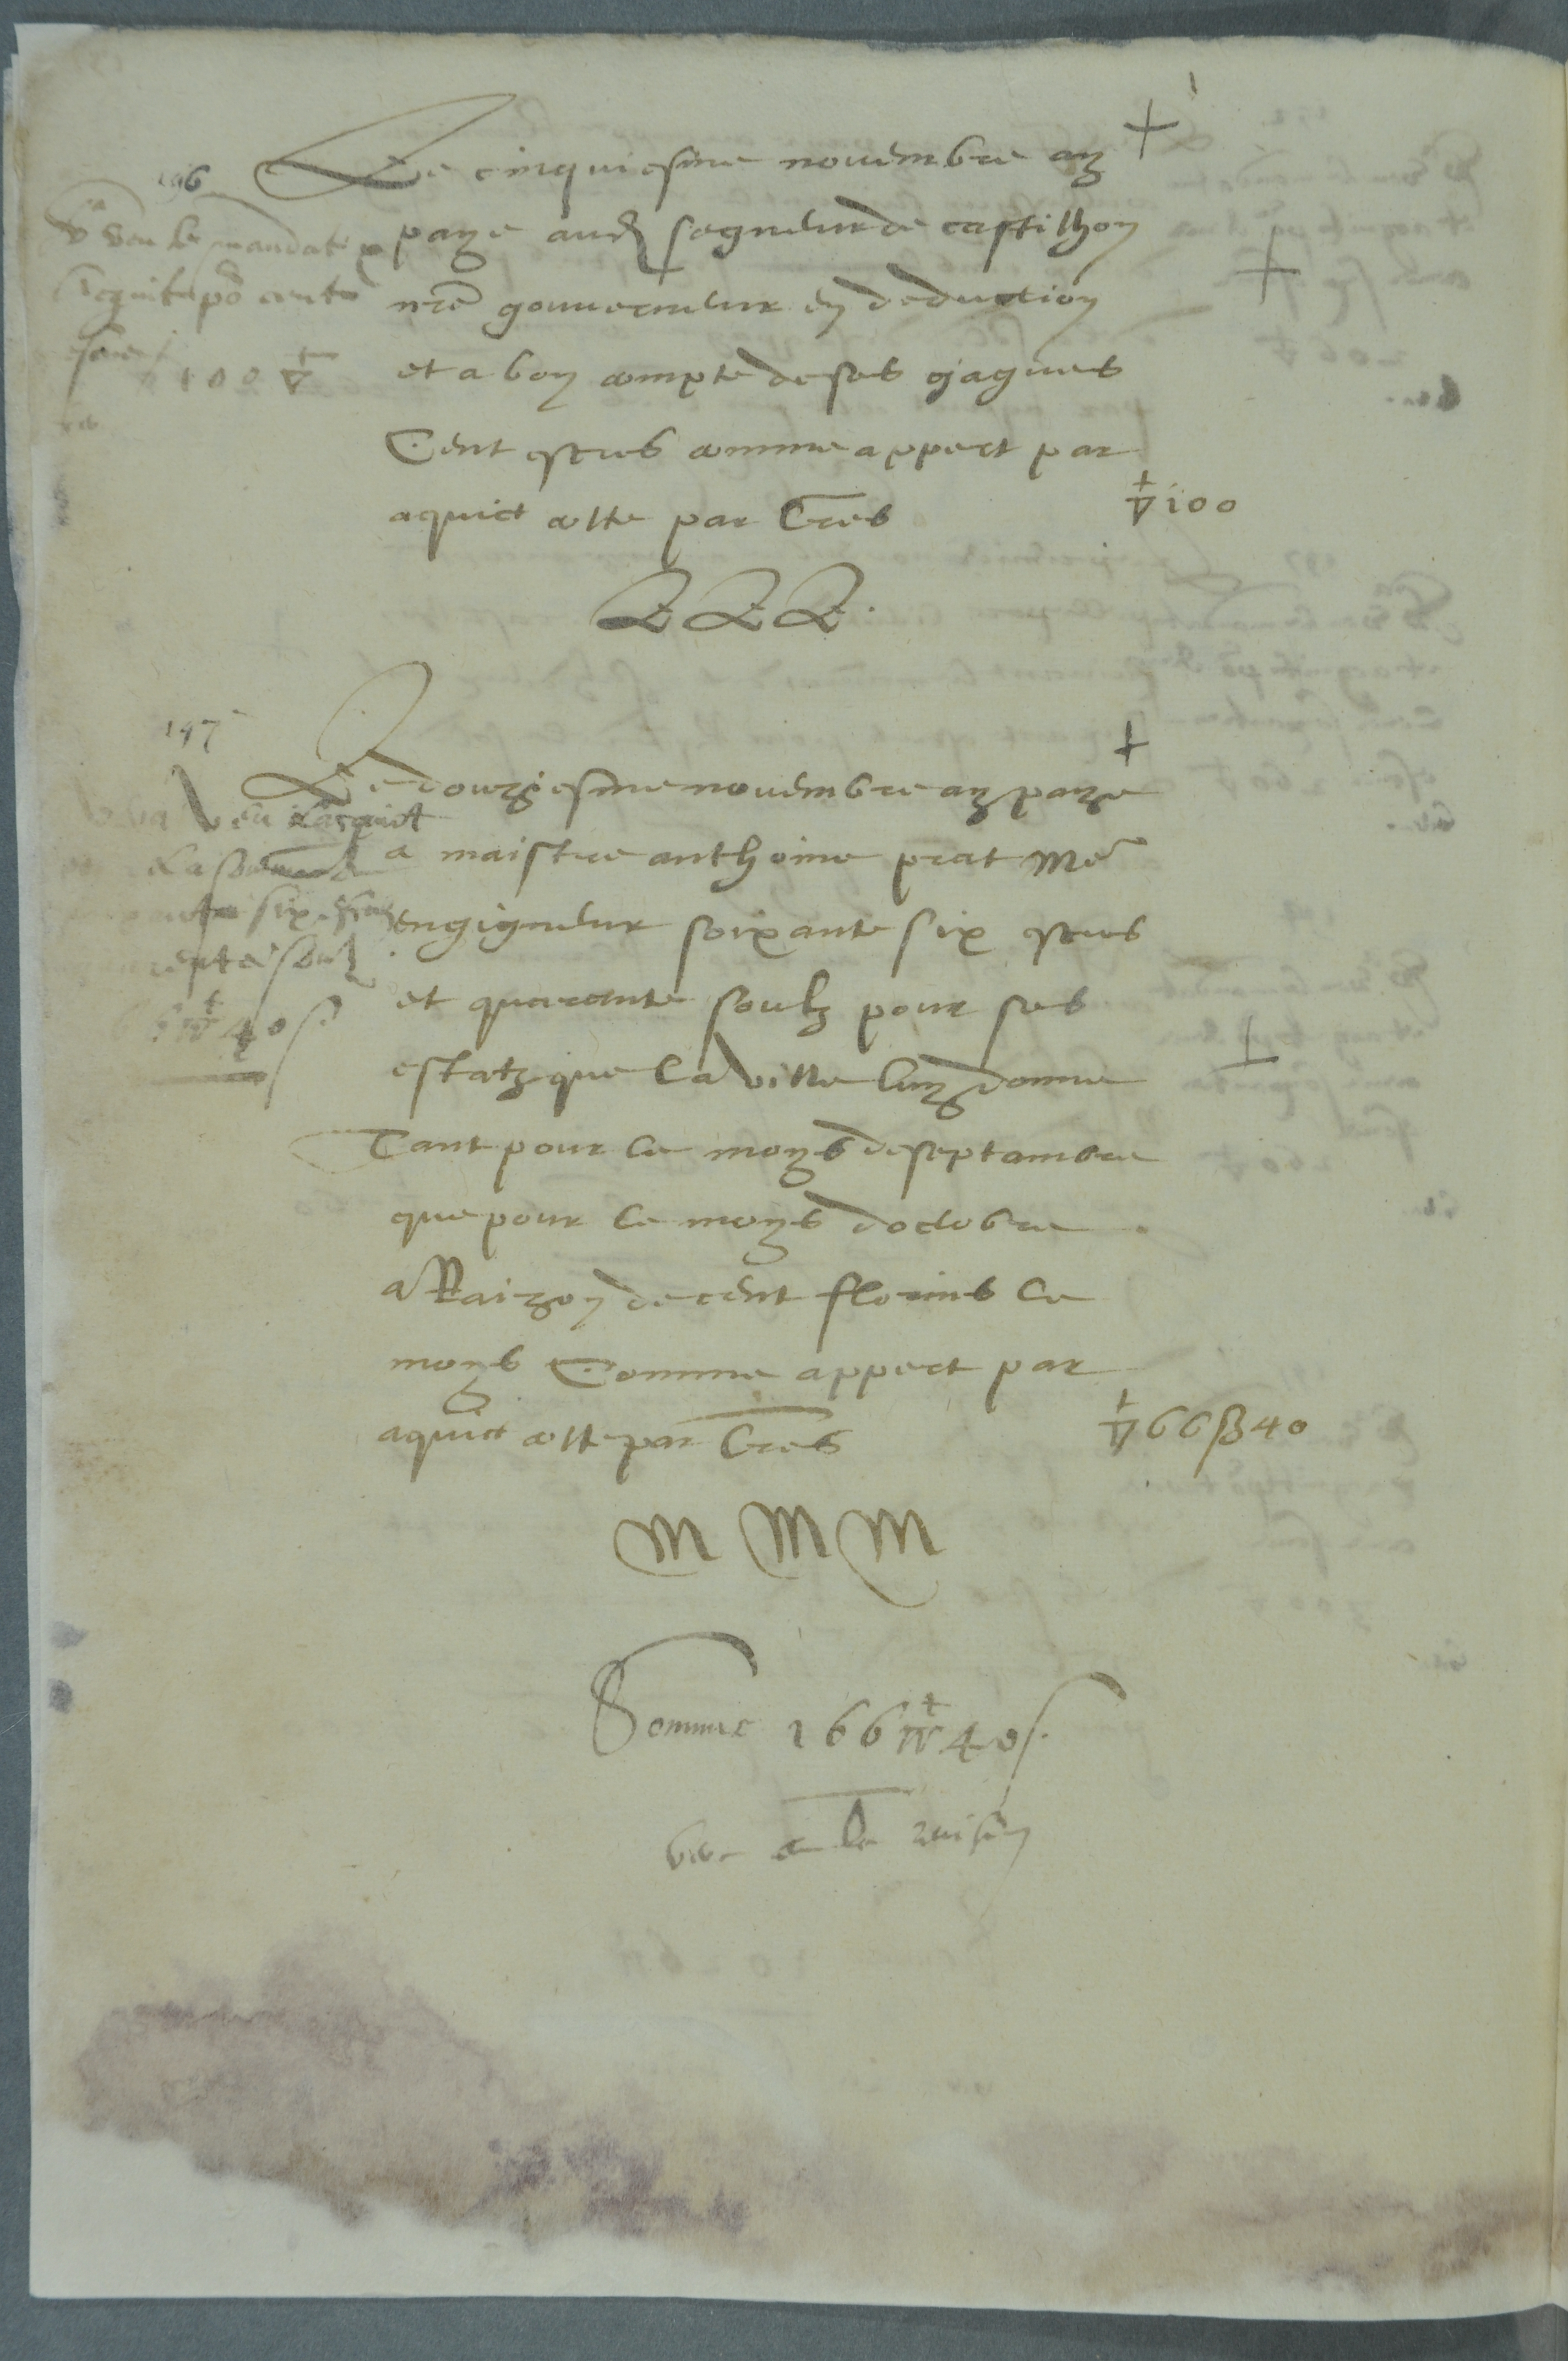 196
Le cinquiesme nouembre ay
paye aud segneur de castilhon
nre gouuerneur en deduction
et a bon compte de ses gagues
Cent escus comme appert par
aquict cotte par Lres
▽ 100
LLL.
veu le mandat
acquit po cent
escus
100 ▽
197
Le douziesme nouembre ay paye
a maistre anthoine prat Me
engigneur soixante six escus
et quarante soulz pour ses
estatz que la ville luy donne
Tant pour le moys de septambre
que pour le moys doctobre
a Raizon de cent florins le
moys Comme appert par
aquict cotte par Lres
▽ 66 β 40
Veu lacquict
six
40 s
M M M
Somme 166 ▽ 40 s.